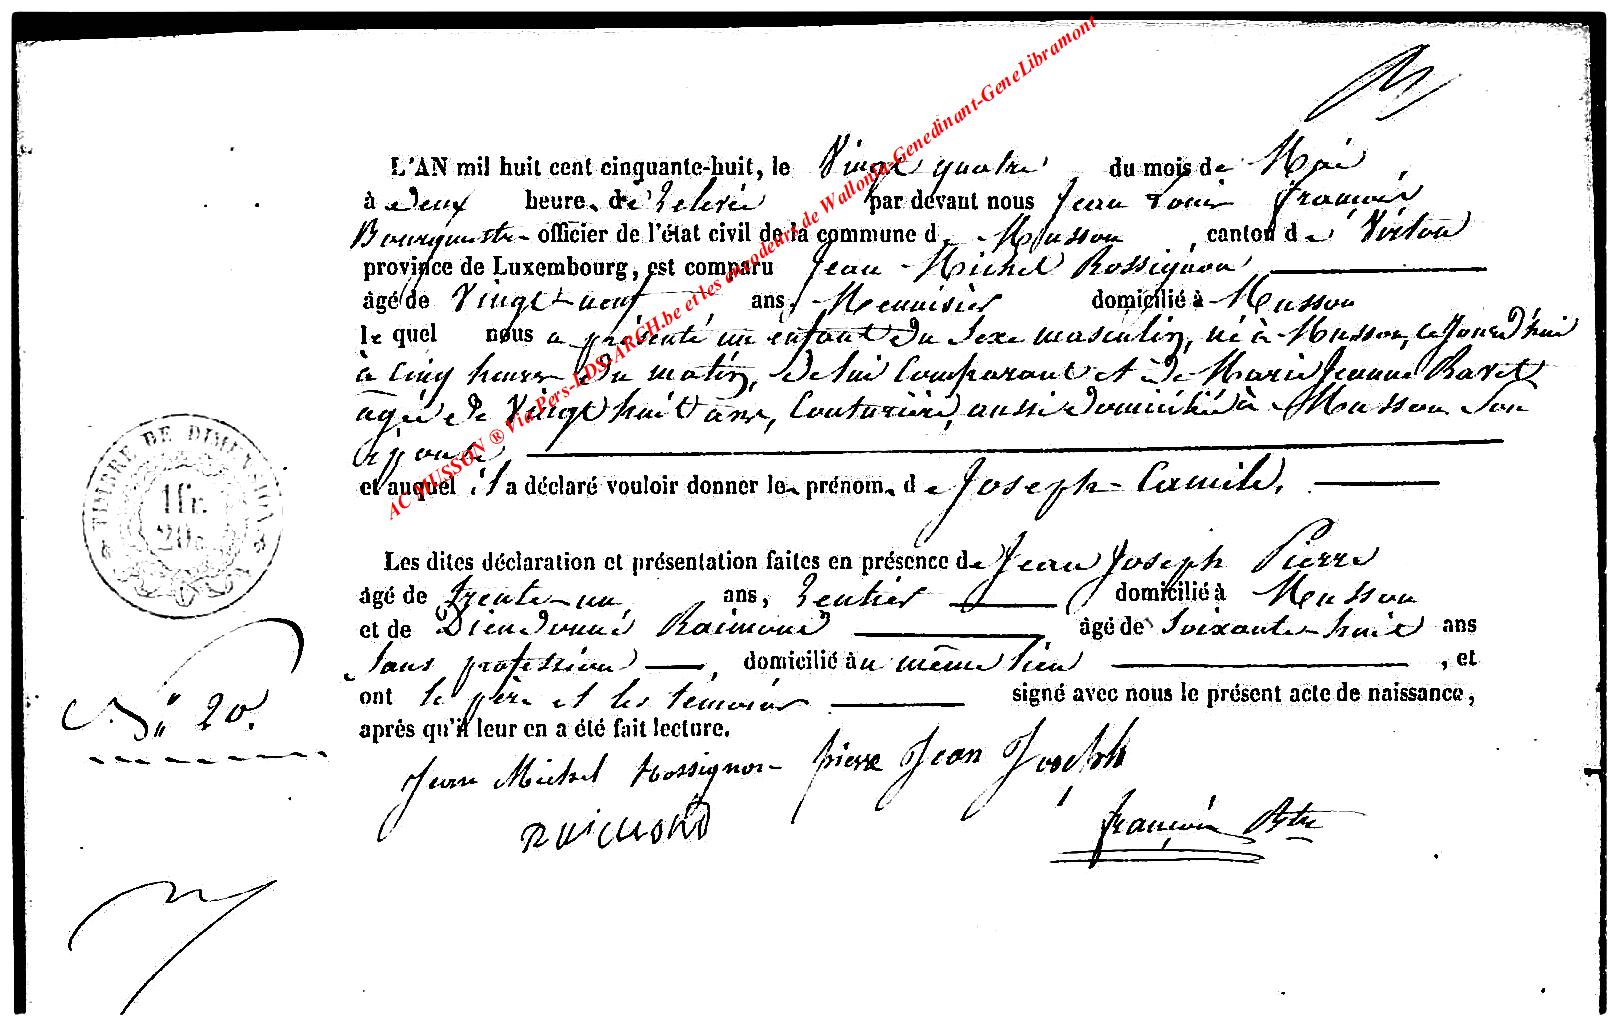 L'AN mil huit cent cinquante-huit, le Vingt quatre du mois de Mai
à deux heures de relevée par devant nous Jean Louis François
Bourgmestre officier de l'état civil de la commune de Musson, canton de Virton
province de Luxembourg, est comparu Jean Michel Rossignon
âgé de Vingt-neuf ans, Menuisier domicilié à Musson
lequel nous a présenté un enfant du sexe masculin, né à Musson, ce jourd'hui
à cinq heures du matin, de lui comparant et de Marie Jeanne Ravet
agée de Vingt huit ans, Couturière, aussi domiciliée à Musson son
épouse,
et auquel il a déclaré vouloir donner le prénom de Joseph-Camile.
TIMBRE DE DIMENSION
1 fr.
20c
Les dites déclaration et présentation faites en présence de Jean Joseph Pierre
âgé de trente-un ans, rentier domicilié à Musson
et de Dieudonné Raimond âgé de soixante-huit ans
sans profession, domicilié au même lieu, et
ont le père et les témoins signé avec nous le présent acte de naissance,
après qu'il leur en a été fait lecture.
N° 20.
Jean Michel Rossignon pierre Jean Joseph
RAIMOND
françois Btre
AC MUSSON ® Via Pers-LDS-ARCH.be et les encodeurs de Wallonia-Genedinant-GeneLibramont